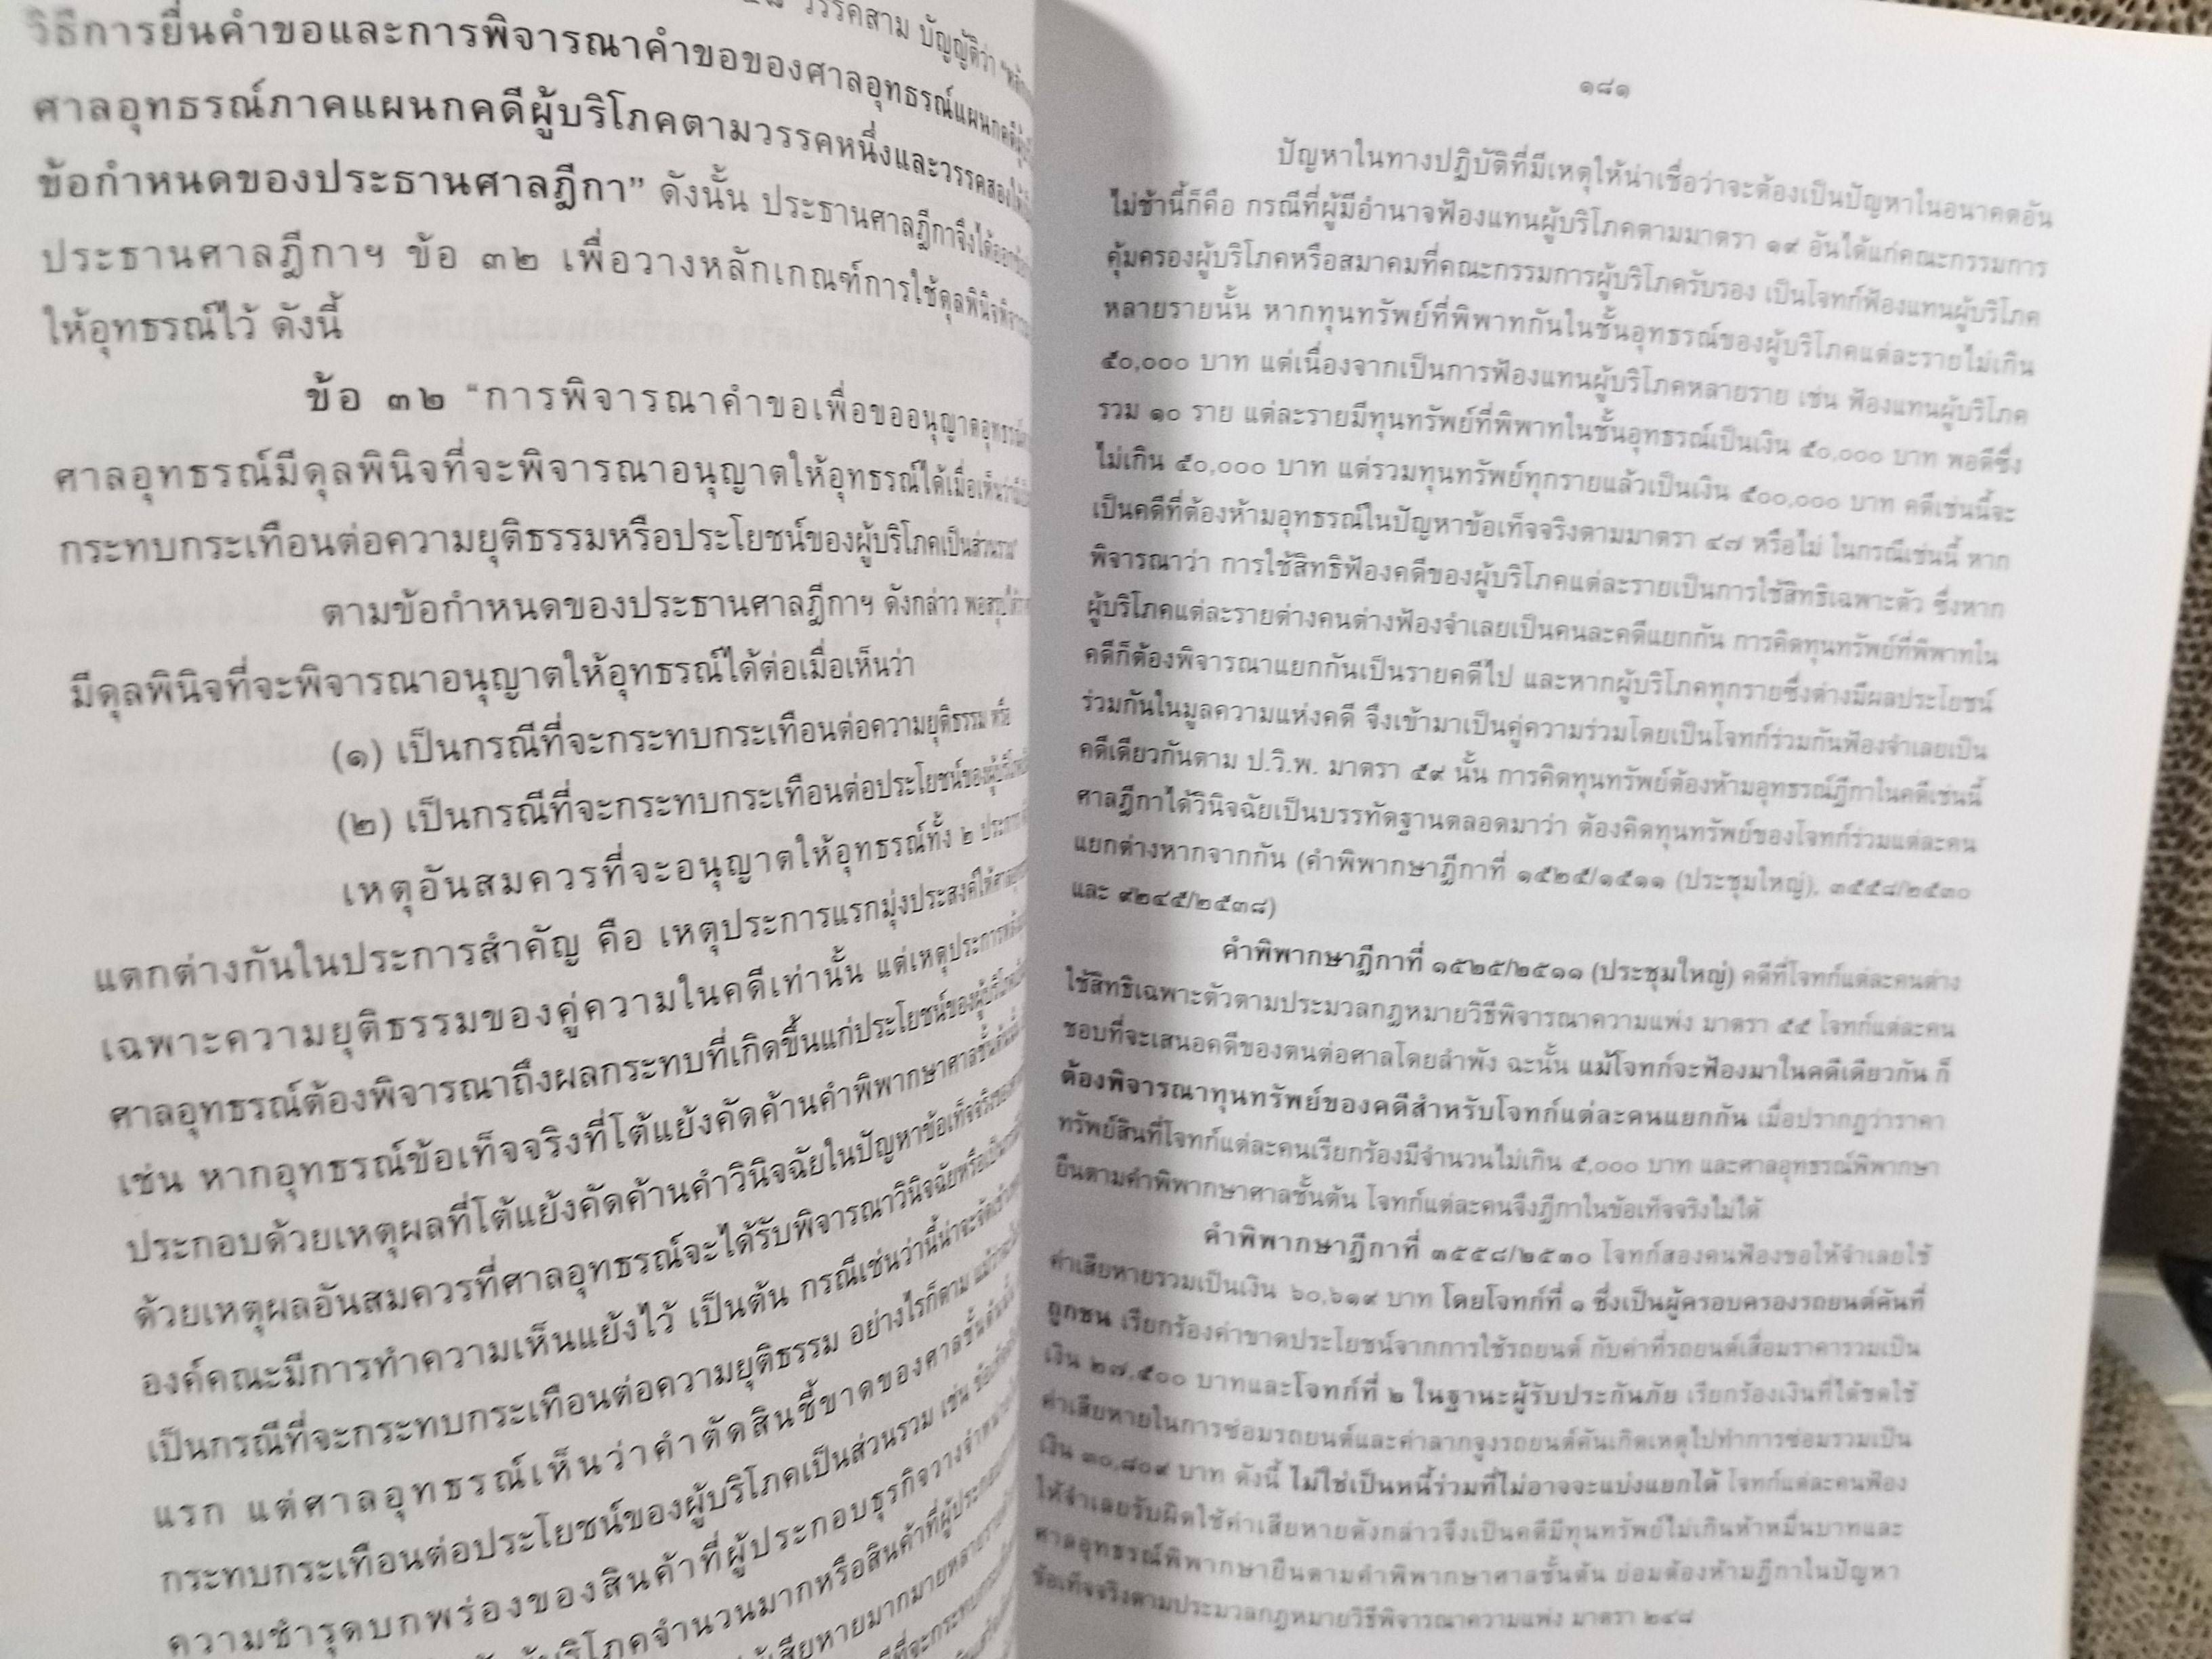 วรรคสาม บัญญัติว่า
วิธีการยื่นคำขอและการพิจารณาคำขอของศาลอุทธรณ์แผนกคดี
ศาลอุทธรณ์ภาคแผนกคดีผู้บริโภคตามวรรคหนึ่งและวรรคสอง
ข้อกำหนดของประธานศาลฎีกา” ดังนั้น ประธานศาลฎีกาจึงได้ออก
ประธานศาลฎีกาฯ ข้อ ๓๒ เพื่อวางหลักเกณฑ์การใช้ดุลพินิจ
ให้อุทธรณ์ไว้ ดังนี้
ข้อ ๓๒ “การพิจารณาคำขอเพื่อขออนุญาตอุทธรณ์
ศาลอุทธรณ์มีดุลพินิจที่จะพิจารณาอนุญาตให้อุทธรณ์ได้เมื่อเห็นว่า
กระทบกระเทือนต่อความยุติธรรมหรือประโยชน์ของผู้บริโภคเป็นส่วนรวม”
ตามข้อกำหนดของประธานศาลฎีกาฯ ดังกล่าว พอสรุปได้ว่า
มีดุลพินิจที่จะพิจารณาอนุญาตให้อุทธรณ์ได้ต่อเมื่อเห็นว่า
(๑) เป็นกรณีที่จะกระทบกระเทือนต่อความยุติธรรม หรือ
(๒) เป็นกรณีที่จะกระทบกระเทือนต่อประโยชน์ของผู้บริโภค
เหตุอันสมควรที่จะอนุญาตให้อุทธรณ์ทั้ง ๒ ประการ
แตกต่างกันในประการสำคัญ คือ เหตุประการแรกมุ่งประสงค์ให้
เฉพาะความยุติธรรมของคู่ความในคดีเท่านั้น แต่เหตุประการ
ศาลอุทธรณ์ต้องพิจารณาถึงผลกระทบที่เกิดขึ้นแก่ประโยชน์ของผู้บริโภค
เช่น หากอุทธรณ์ข้อเท็จจริงที่โต้แย้งคัดค้านคำพิพากษาศาลชั้นต้น
ประกอบด้วยเหตุผลที่โต้แย้งคัดค้านคำวินิจฉัยในปัญหาข้อเท็จจริงของ
ด้วยเหตุผลอันสมควรที่ศาลอุทธรณ์จะได้รับพิจารณาวินิจฉัยหรือ
องค์คณะมีการทำความเห็นแย้งไว้ เป็นต้น กรณีเช่นว่านี้น่าจะจัด
เป็นกรณีที่จะกระทบกระเทือนต่อความยุติธรรม อย่างไรก็ตาม
แรก แต่ศาลอุทธรณ์เห็นว่าคำตัดสินชี้ขาดของศาลชั้นต้นนั้น
กระทบกระเทือนต่อประโยชน์ของผู้บริโภคเป็นส่วนรวม เช่น
ความชำรุดบกพร่องของสินค้าที่ผู้ประกอบธุรกิจวางจำหน่าย
ผู้บริโภคจำนวนมากหรือสินค้าที่ผู้ประกอบ
เสียหายมากมายหลาย
ที่จะกระทบ
๑๘๑
ปัญหาในทางปฏิบัติที่มีเหตุให้น่าเชื่อว่าจะต้องเป็นปัญหาในอนาคตอัน
ไม่ช้านี้ก็คือ กรณีที่ผู้มีอำนาจฟ้องแทนผู้บริโภคตามมาตรา ๑๙ อันได้แก่คณะกรรมการ
คุ้มครองผู้บริโภคหรือสมาคมที่คณะกรรมการผู้บริโภครับรอง เป็นโจทก์ฟ้องแทนผู้บริโภค
หลายรายนั้น หากทุนทรัพย์ที่พิพาทกันในชั้นอุทธรณ์ของผู้บริโภคแต่ละรายไม่เกิน
๕๐,๐๐๐ บาท แต่เนื่องจากเป็นการฟ้องแทนผู้บริโภคหลายราย เช่น ฟ้องแทนผู้บริโภค
รวม ๑๐ ราย แต่ละรายมีทุนทรัพย์ที่พิพาทในชั้นอุทธรณ์เป็นเงิน ๕๐,๐๐๐ บาท พอดีซึ่ง
ไม่เกิน ๕๐,๐๐๐ บาท แต่รวมทุนทรัพย์ทุกรายแล้วเป็นเงิน ๕๐๐,๐๐๐ บาท คดีเช่นนี้จะ
เป็นคดีที่ต้องห้ามอุทธรณ์ในปัญหาข้อเท็จจริงตามมาตรา ๔๗ หรือไม่ ในกรณีเช่นนี้ หาก
พิจารณาว่า การใช้สิทธิฟ้องคดีของผู้บริโภคแต่ละรายเป็นการใช้สิทธิเฉพาะตัว ซึ่งหาก
ผู้บริโภคแต่ละรายต่างคนต่างฟ้องจำเลยเป็นคนละคดีแยกกัน การคิดทุนทรัพย์ที่พิพาทใน
คดีก็ต้องพิจารณาแยกกันเป็นรายคดีไป และหากผู้บริโภคทุกรายซึ่งต่างมีผลประโยชน์
ร่วมกันในมูลความแห่งคดี จึงเข้ามาเป็นคู่ความร่วมโดยเป็นโจทก์ร่วมกันฟ้องจำเลยเป็น
คดีเดียวกันตาม ป.วิ.พ. มาตรา ๕๙ นั้น การคิดทุนทรัพย์ต้องห้ามอุทธรณ์ฎีกาในคดีเช่นนี้
ศาลฎีกาได้วินิจฉัยเป็นบรรทัดฐานตลอดมาว่า ต้องคิดทุนทรัพย์ของโจทก์ร่วมแต่ละคน
แยกต่างหากจากกัน (คำพิพากษาฎีกาที่ ๑๕๒๕/๑๕๑๑ (ประชุมใหญ่), ๓๕๕๘/๒๕๓๐
และ ๙๒๔๕/๒๕๓๘)
คำพิพากษาฎีกาที่ ๑๕๒๕/๒๕๑๑ (ประชุมใหญ่) คดีที่โจทก์แต่ละคนต่าง
ใช้สิทธิเฉพาะตัวตามประมวลกฎหมายวิธีพิจารณาความแพ่ง มาตรา ๕๕ โจทก์แต่ละคน
ชอบที่จะเสนอคดีของตนต่อศาลโดยลำพัง ฉะนั้น แม้โจทก์จะฟ้องมาในคดีเดียวกัน ก็
ต้องพิจารณาทุนทรัพย์ของคดีสำหรับโจทก์แต่ละคนแยกกัน เมื่อปรากฏว่าราคา
ทรัพย์สินที่โจทก์แต่ละคนเรียกร้องมีจำนวนไม่เกิน ๕,๐๐๐ บาท และศาลอุทธรณ์พิพากษา
ยืนตามคำพิพากษาศาลชั้นต้น โจทก์แต่ละคนจึงฎีกาในข้อเท็จจริงไม่ได้
คำพิพากษาฎีกาที่ ๓๕๕๘/๒๕๓๐ โจทก์สองคนฟ้องขอให้จำเลยใช้
ค่าเสียหายรวมเป็นเงิน ๖๐,๖๑๙ บาท โดยโจทก์ที่ ๑ ซึ่งเป็นผู้ครอบครองรถยนต์คันที่
ถูกชน เรียกร้องค่าขาดประโยชน์จากการใช้รถยนต์ กับค่าที่รถยนต์เสื่อมราคารวมเป็น
เงิน ๒๗,๕๐๐ บาทและโจทก์ที่ ๒ ในฐานะผู้รับประกันภัย เรียกร้องเงินที่ได้ชดใช้
ค่าเสียหายในการซ่อมรถยนต์และค่าลากจูงรถยนต์คันเกิดเหตุไปทำการซ่อมรวมเป็น
เงิน ๓๐,๘๐๙ บาท ดังนี้ ไม่ใช่เป็นหนี้ร่วมที่ไม่อาจจะแบ่งแยกได้ โจทก์แต่ละคนฟ้อง
ให้จำเลยรับผิดใช้ค่าเสียหายดังกล่าวจึงเป็นคดีมีทุนทรัพย์ไม่เกินห้าหมื่นบาทและ
ศาลอุทธรณ์พิพากษายืนตามคำพิพากษาศาลชั้นต้น ย่อมต้องห้ามฎีกาในปัญหา
ข้อเท็จจริงตามประมวลกฎหมายวิธีพิจารณาความแพ่ง มาตรา ๒๔๘